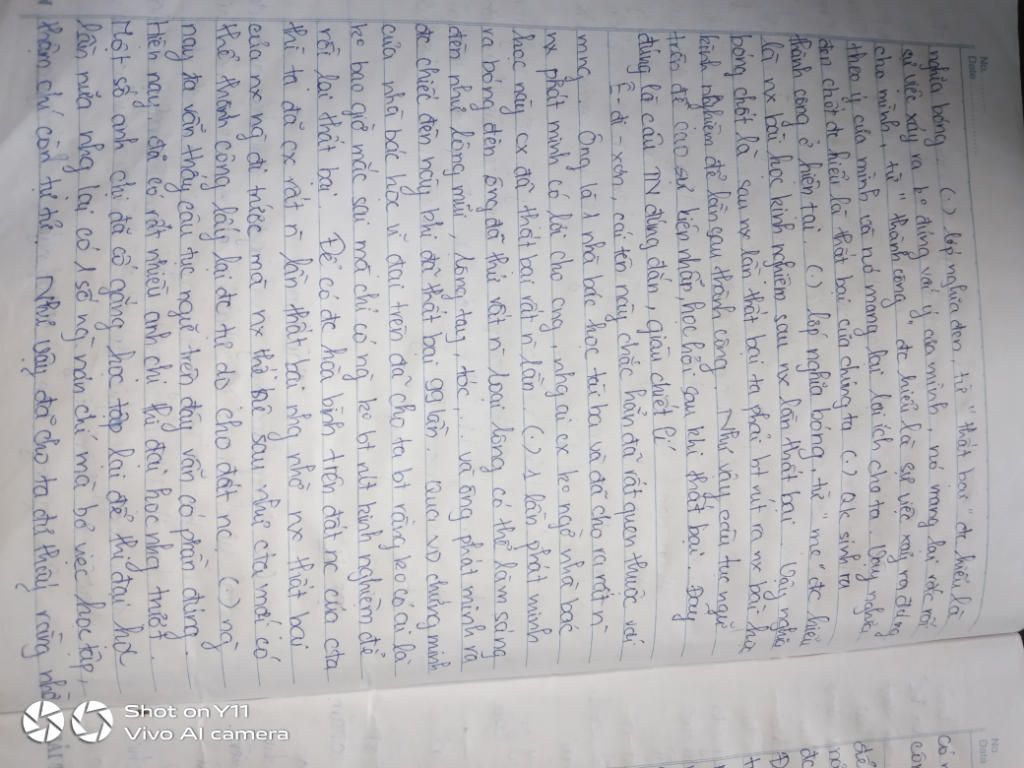 No.
Date
nghĩa bóng. (.) lớp nghĩa đen, từ " thất bại " đc hiểu là
sự việc xảy ra ko đúng với ý của mình, nó mang lại rắc rối
cho mình, từ " thành công " đc hiểu là sự việc xảy ra đúng
theo ý của mình và nó mang lại lợi ích cho ta. Vậy nghĩa
đen chốt đc hiểu là thất bại của chúng ta (.) q.k sinh ra
thành công ở hiện tại. (.) lớp nghĩa bóng, từ " mẹ " đc hiểu
là nx bài học kinh nghiệm sau nx lần thất bại. Vậy nghĩa
bóng chốt là sau nx lần thất bại ta phải bt rút ra nx bài học
kinh nghiệm để lần sau thành công. Như vậy câu tục ngữ
trên đề cao sự kiên nhẫn, học hỏi sau khi thất bại. Đây
đúng là câu TN đúng đắn, giàu chiết lí
Ê-đi-xơn, cái tên này chắc hẳn đã rất quen thuộc với
mng. Ông là 1 nhà bác học tài ba và đã cho ra rất n`
nx phát minh có lợi cho cng, nhg ai cx ko ngờ nhà bác
học này cx đã thất bại rất n` lần. (.) 1 lần phát minh
ra bóng đèn ông đã thử rất n` loại lông có thể làm sáng
đèn như lông mũi, lông tay, tóc,... và ông phát minh ra
đc chiếc đèn này khi đã thất bại 99 lần. Qua vc chứng minh
của nhà bác học vĩ đại trên đã cho ta bt rằng ko có ai là
ko bao giờ mắc sai mà chỉ có ng ko bt rút kinh nghiệm để
rồi lại thất bại. Để có đc hòa bình trên đất nc của cta
thì ta đã cx rất n` lần thất bại nhg nhờ nx thất bại
của nx ng đi trước mà nx thế hệ sau như cta mới có
thể thành công lấy lại đc tự do cho đất nc. (.) ng
nay ta vẫn thấy câu tục ngữ trên đây vẫn có phần đúng
Hiện nay, đã có rất nhiều anh chị thi đại học nhg trượt.
Một số anh chị đã cố gắng học tập lại để thi đại học
lần nữa nhg lại có 1 số ng nản chí mà bỏ việc học tập,
thậm chí còn tự tử. Như vậy đã cho ta đc thấy rằng nhờ
No
Date
Shot on Y11
Vivo AI camera